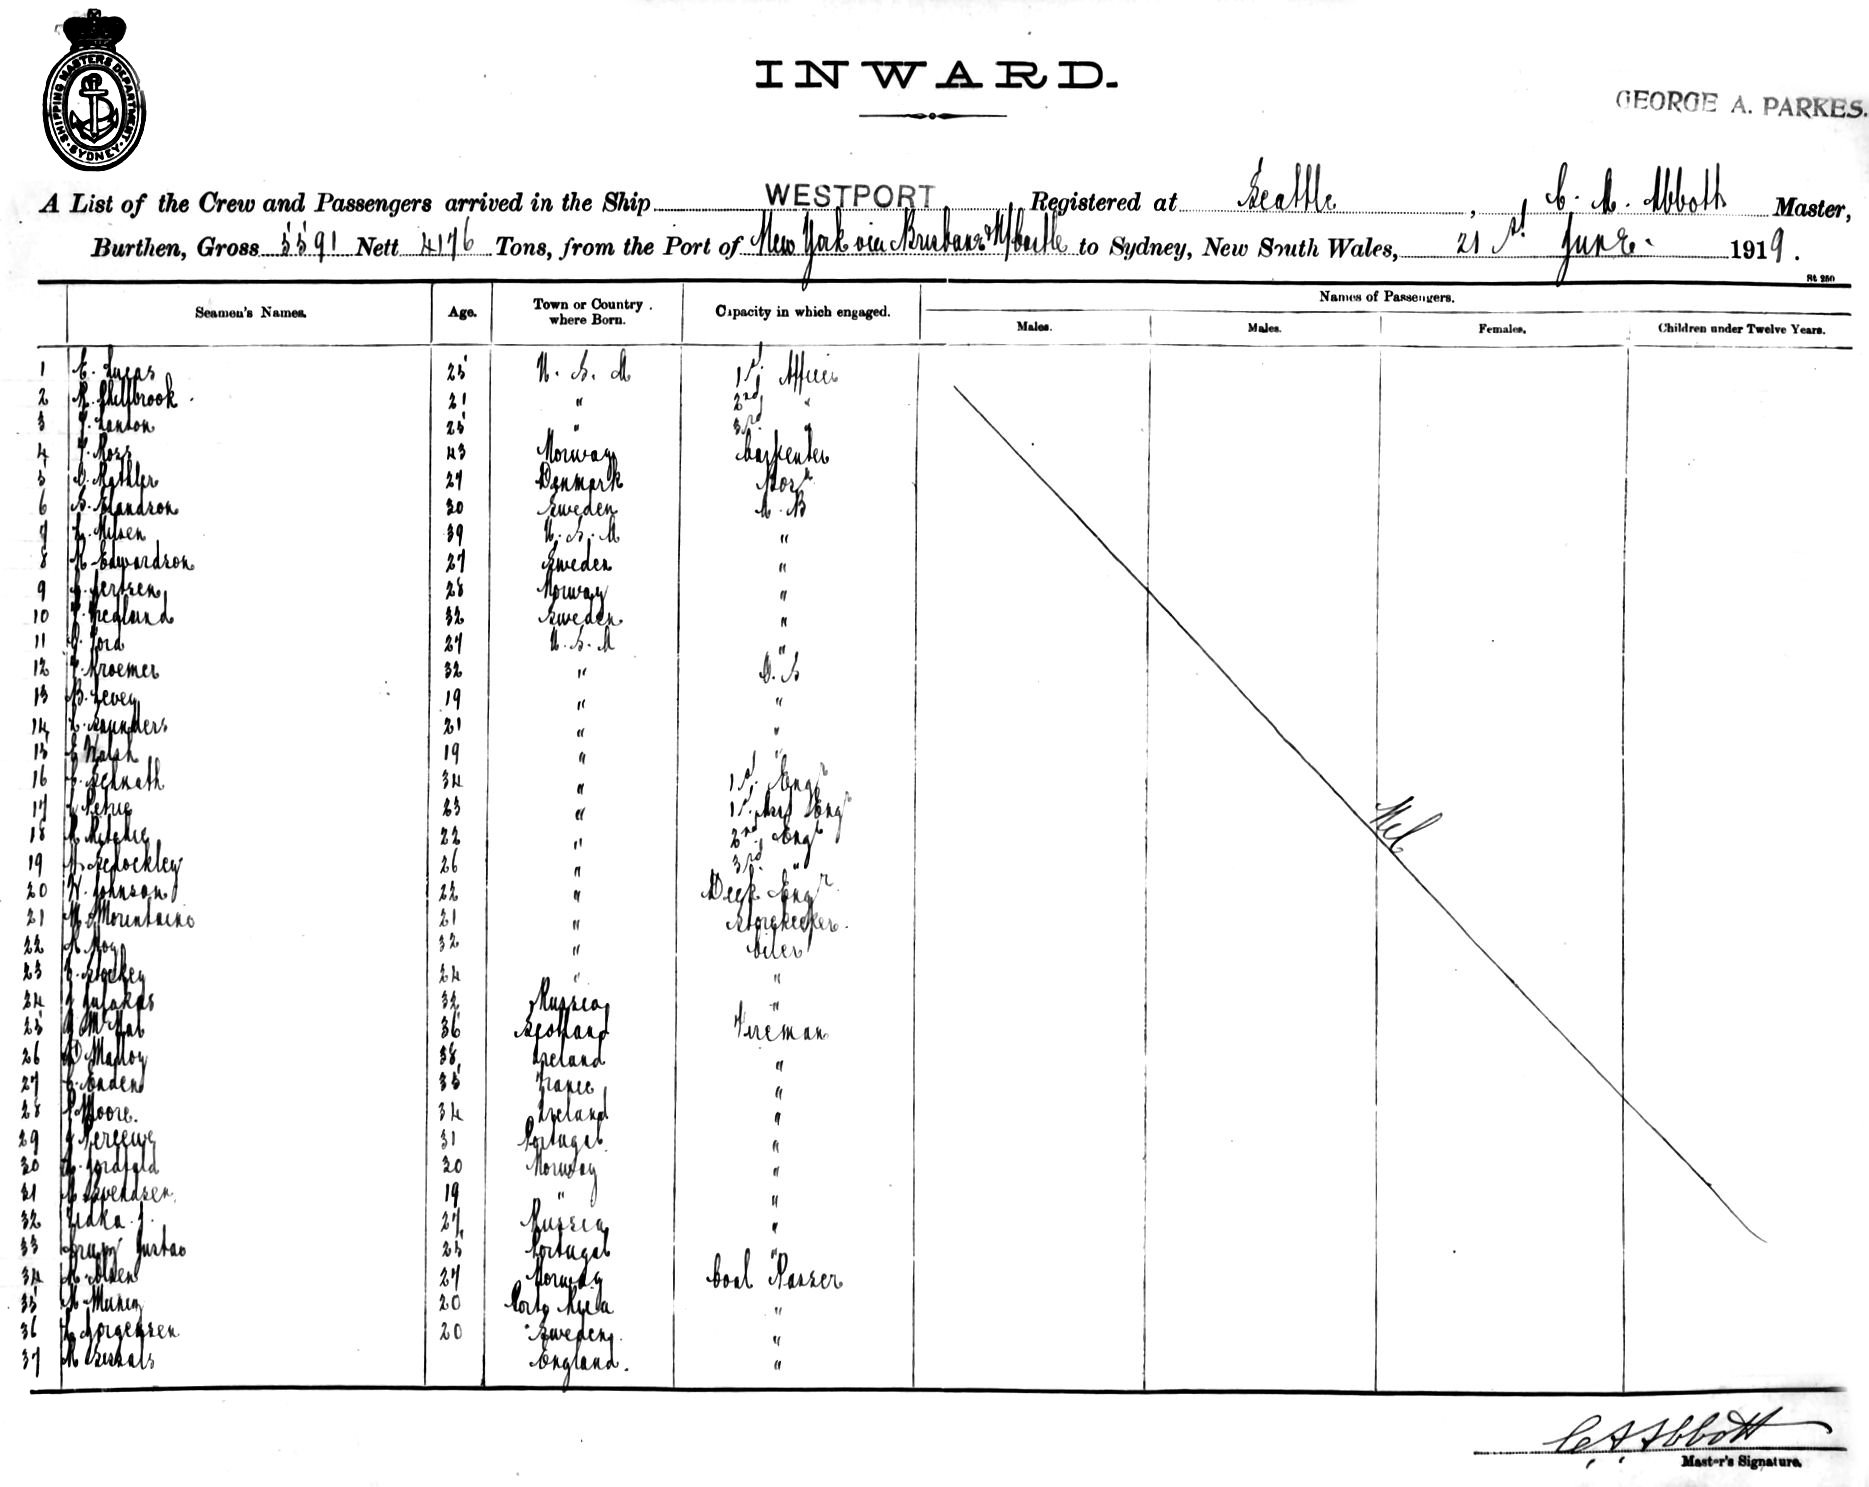 SHIPPING MASTERS DEPARTMENT
SYDNEY
INWARD.
GEORGE A. PARKES.
A List of the Crew and Passengers arrived in the Ship WESTPORT Registered at Seattle, C. A. Abbott Master,
Burthen, Gross 5591 Nett 4176 Tons, from the Port of New York via Brisbane & N/castle to Sydney, New South Wales, 21st June 1919.
St 250
Seamen's Names. Age. Town or Country where Born. Capacity in which engaged. Names of Passengers.
Males. Males. Females. Children under Twelve Years.
1 Lucas 25 U. S. A 1st Officer
2 21 " 2nd "
3 25 " 3rd "
4 Ross 43 Norway Carpenter
5 27 Denmark Bosn
6 30 Sweden A. B
7 39 U. S. A "
8 Edwardson 27 Sweden "
9 28 Norway "
10 32 Sweden "
11 Ford 27 U. S. A "
12 Kroemer 32 " O. S
13 B. Levey 19 " "
14 Saunders 21 " "
15 Walsh 19 " "
16 34 " 1st Engr
17 Petrie 23 " 1st Asst Engr
18 Ritchie 22 " 2nd Engr
19 26 " 3rd "
20 W. Johnson 22 " Deck Engr
21 21 " Storekeeper
22 32 " Oiler
23 24 " "
24 32 Russia "
25 McNab 36 Scotland Fireman
26 Malloy 38 Ireland "
27 35 France "
28 Moore. 34 Ireland "
29 31 Portugal "
30 30 Norway "
31 Svendsen 19 " "
32 27 Russia "
33 25 Portugal "
34 Olsen 27 Norway Coal Passer
35 20 Porto Rica "
36 Jorgensen 20 Sweden "
37 England. "
Nil
C A Abbott
Master's Signature.